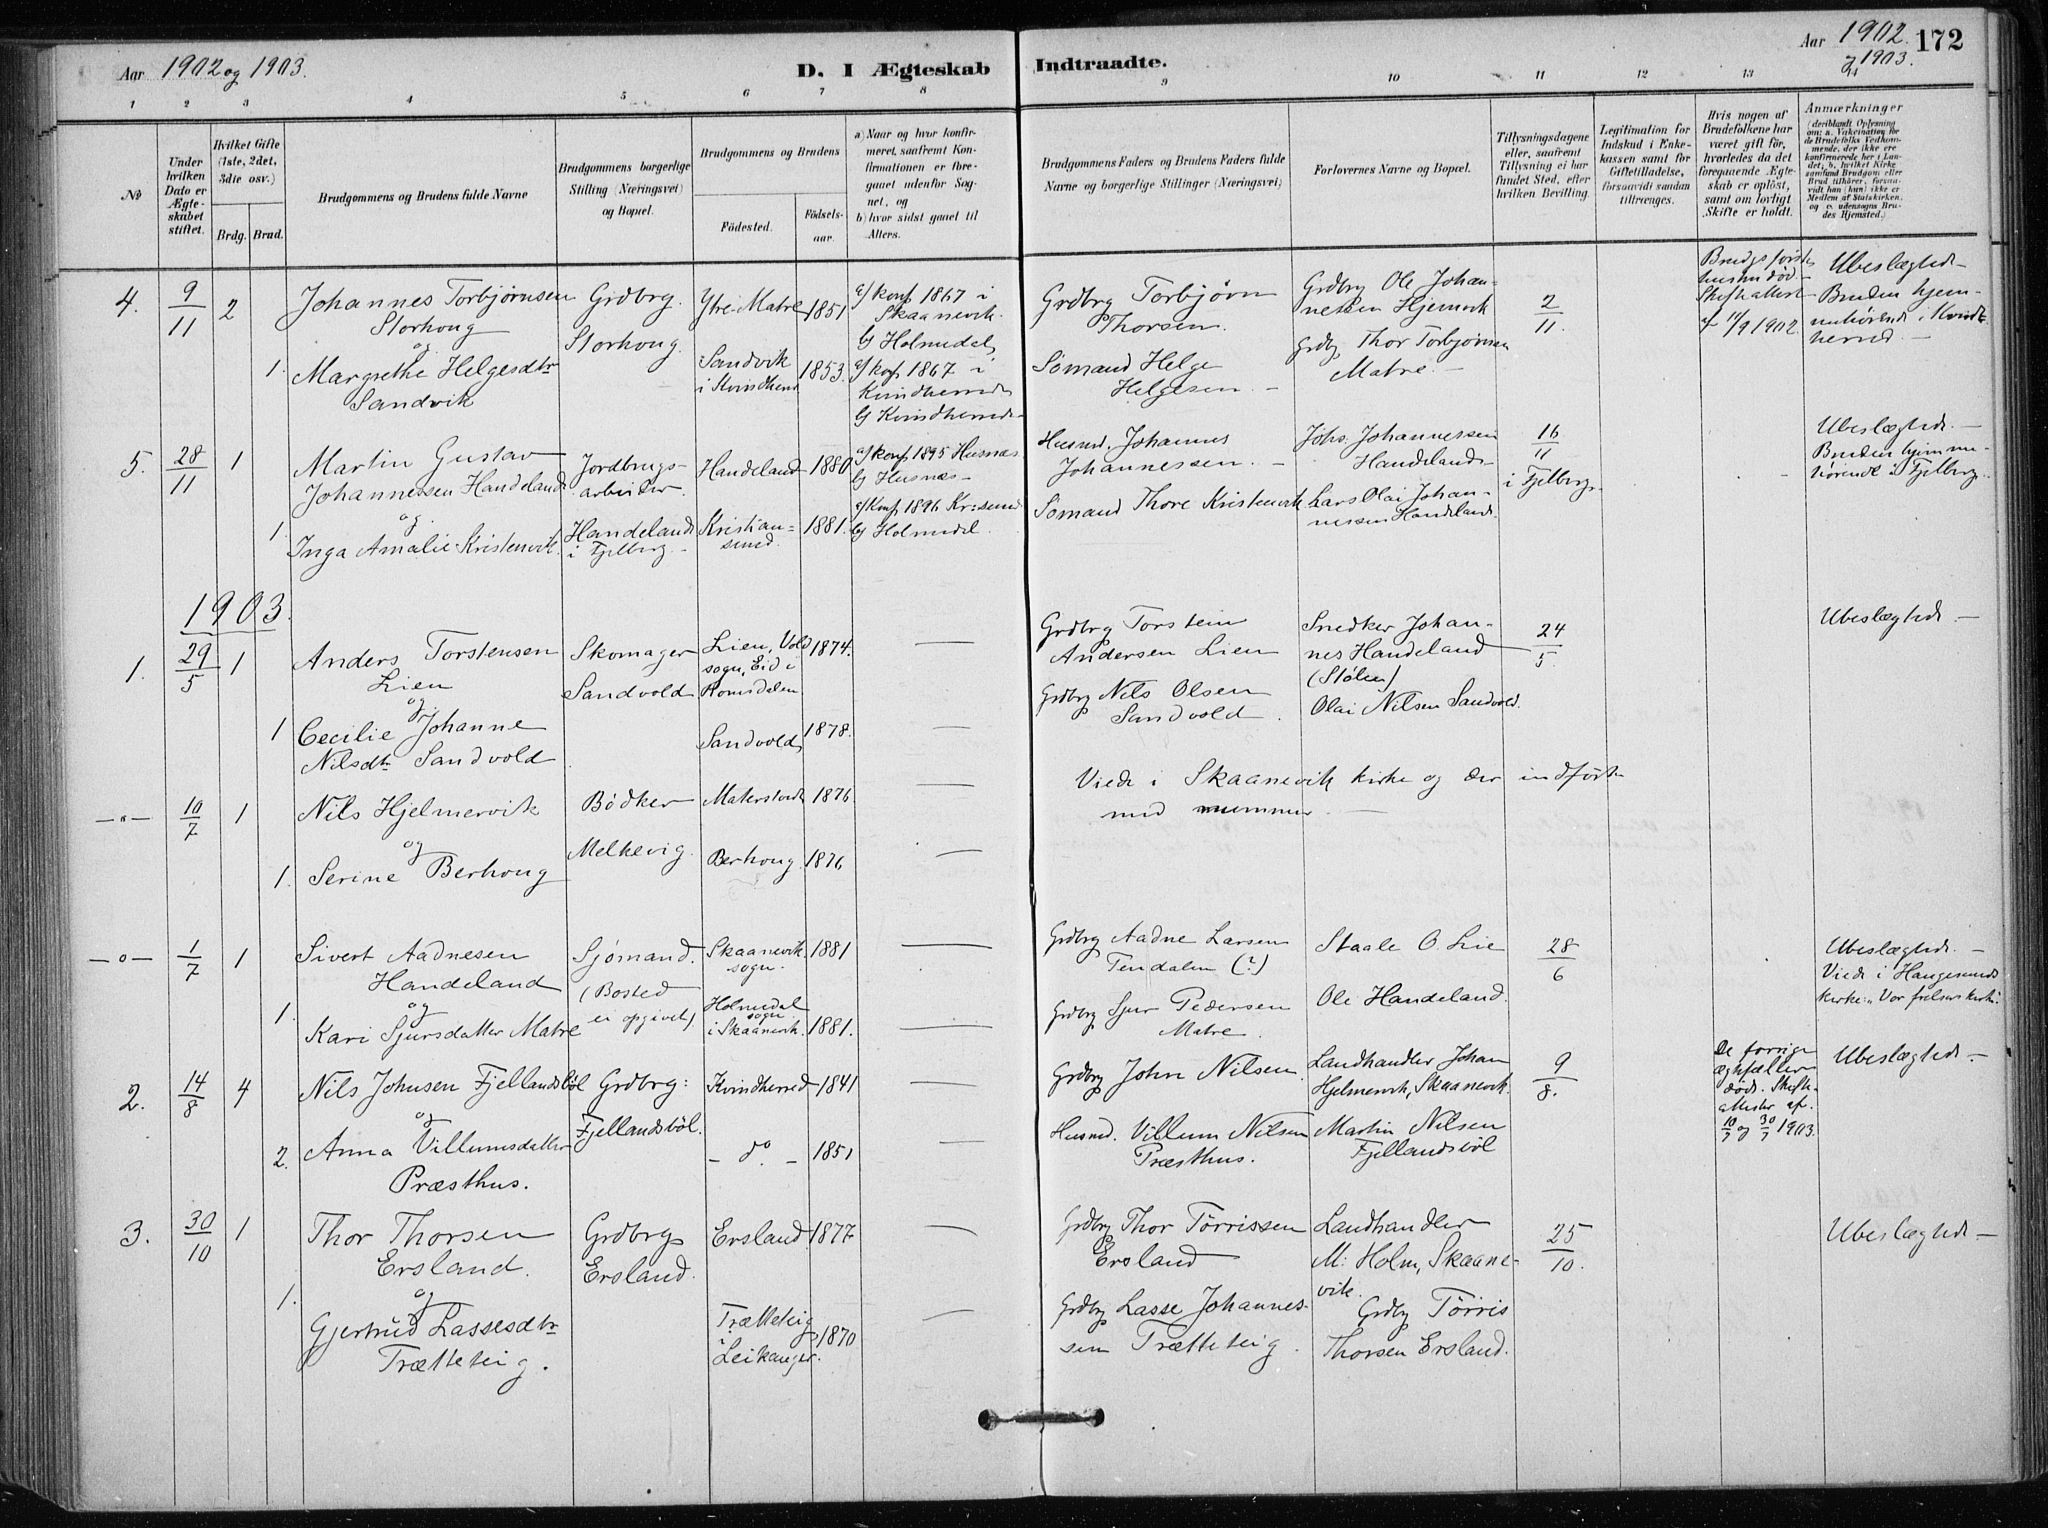 Aar 1902 og 1903.
D. I Ægteskab Indtraadte.
Aar 1902 og 1903. 172
1 2 3 4 5 6 7 8 9 10 11 12 13
№
Under hvilken Dato er Ægteskabet stiftet.
Hvilket Gifte (1ste, 2det, 3die osv.)
Brdg. Brud.
Brudgommens og Brudens fulde Navne
Brudgommens borgerlige Stilling (Næringsvei) og Bopæl.
Brudgommens og Brudens
Födested.
Födselsaar.
a) Naar og hvor konfirmeret, saafremt Konfirmationen er foregaaet udenfor Sognet, og
b) hvor sidst gaaet til Alters.
Brudgommens Faders og Brudens Faders fulde Navne og borgerlige Stillinger (Næringsvei)
Forlovernes Navne og Bopæl.
Tillysningsdagene eller, saafremt Tillysning ei har fundet Sted, efter hvilken Bevilling.
Legitimation for Indskud i Enkekassen samt for Giftetilladelse, forsaavidt saadan tiltrænges.
Hvis nogen af Brudefolkene har været gift för, hvorledes da det foregaaende Ægteskab er oplöst, samt om lovligt Skifte er holdt.
Anmærkninger (deriblandt Oplysning om: a. Vakcination for de Brudefolks Vedkommende, der ikke ere konfirmerede her i Landet; b. hvilket Kirkesamfund Brudgom eller Brud tilhører, forsaavidt han (hun) ikke er Medlem af Statskirken, og c. udensogns Brudes Hjemsted.)
4. 9/11 2
Johannes Torbjørnsen
Storhoug
og
1. Margrethe Helgesdtr
Sandvik
Grdbrg.
Storhoug.
Ytre-Matre 1851
Sandvik
i Kvindherr 1853.
a) konf 1867 i
Skaanevik.
b) Holmedal
a) konf 1867 i
Kvindherred
b) Kvindherred
Grdbrg Torbjørn
Thorsen.
Sømand Helge
Helgesen. —
Grdbrg Ole Johan-
nesen Hjemvik
Grdbg Thor Torbjørnsen
Matre. —
2/11.
Brudgs første
hustru død.
Skifteattest
af 11/9 1902.
Ubeslægtede —
Bruden hjem-
mehørende i Kvind-
herred. —
5. 28/11 1
Martin Gustav
Johannessen Handeland
og
1. Inga Amalie Kristenvik
Jordbrugs-
arbeider.
Handeland
i Fjelberg —
Handeland 1880.
Kristian-
sund. 1881.
a) konf 1895 Husnæs.
b) Husnæs —
a) Konf 1896 Kr:sund
b) Holmedal.
Husmd. Johannes
Johannessen. —
Sømand Thore Kristenvik
Johs. Johannessen
Handeland —
Lars Olai Johan-
nessen Handeland.
16/11
i Fjelberg.
Ubeslægtede. —
Bruden hjemme-
hørende i Fjelberg. —
1903.
1. 29/5 1
Anders Torstensen
Lien
og
1 Cecilie Johanne
Nilsdtr Sandvold
Skomager
Sandvold
Lien, Vold
sogn, Eid i
Romsdalen 1874.
Sandvold 1878.
Grdbrg Torstein
Andersen Lien
Grdbrg Nils Olsen
Sandvold.
Snedker Johan-
nes Handeland
(Stølen)
Olai Nilsen Sandvold.
24/5.
Ubeslægtede —
—"— 10/7 1
Nils Hjelmervik
og
1. Serine Berhoug
Bödker
Melkevig.
Matrestrde 1876
Berhoug. 1876
Viede i Skaanevik kirke og der indførte
med nummer. —
—o— 1/7 1
Sivert Aadnesen
Handeland
og
1. Kari Sjursdatter Matre
Sjømand.
(Bosted
ei opgivet)
Skaanevik
sogn. 1881
Holmedal
sogn
i Skaanevik. 1881.
Grdbrg Aadne Larsen
Tendalen (?)
Grdbrg Sjur Pedersen
Matre.
Staale O. Lie
Ole Handeland.
28/6
Ubeslægtede. —
Viede i Haugesunds
kirke: "Vor frelsers kirke".
2. 14/8 4
Nils Johnsen Fjellandsböl
og
2. Anna Villumsdatter
Præsthus.
Grdbrg:
Fjellandsböl.
Kvindherred 1841
— do. — 1851
Grdbrg John Nilsen.
Husmd. Villum Nilsen
Præsthus.
Landhandler Johan
Hjelmervik, Skaanevik.
Martin Nilsen
Fjellandsböl
9/8.
De forrige
ægtefæller
døde. Skifte-
attester af
10/7 og 30/7 1903.
Ubeslægtede. —
3. 30/10 1
Thor Thorsen
Ersland.
og
1. Gjertrud Lassesdtr
Trætteteig.
Grdbrg
Ersland.
Ersland. 1877
Trætteteig
i
Leikanger. 1870
Grdbrg Thor Tørrissen
Ersland
Grdbrg Lasse Johannes-
sen Trætteteig.
Landhandler
M: Holm, Skaane-
vik.
Grdbg Tørris
Thorsen Ersland.
25/10.
Ubeslægtede —